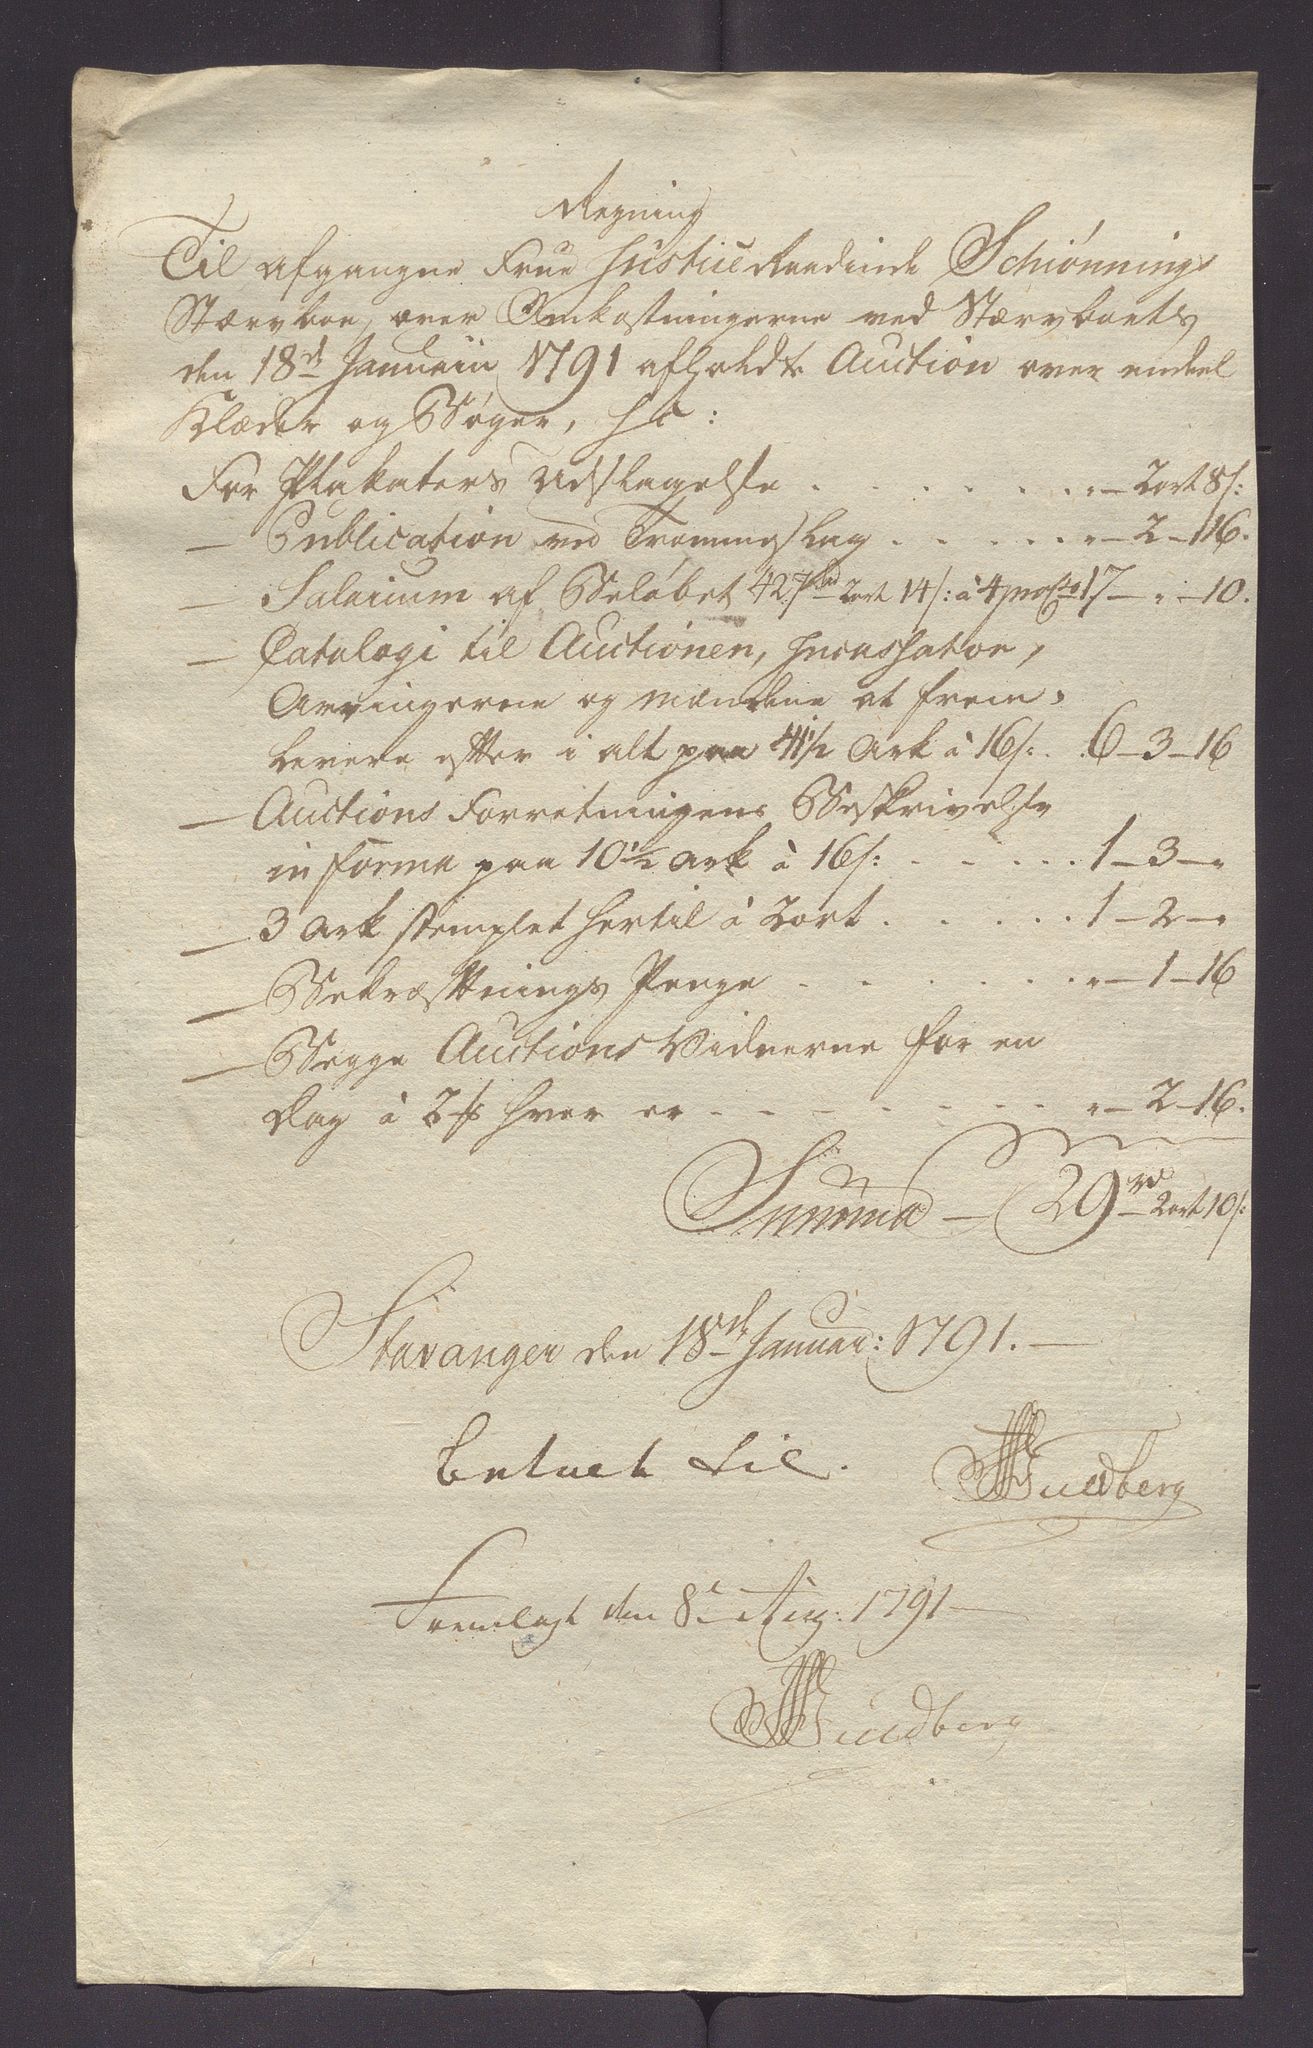 Regning
Til afgangne Frue Justice Raadinde Schiønnings
Stærvboe, over Omkostningerne ved Stærvboets
den 18d Januarii 1791 afholdte Auction over endeel
Klæder og Bøger, sc:
For Plakaters Udslagelse . . . . . . . " — 2 ort 8 s:
— Publication ved Trommeslag . . . . . " — 2 — 16.
— Salarium af Beløbet 427 rd 2 ort 14 s: à 4 procto 17 — " — 10.
— Catalogi til Auctionen, Incassator,
Arvingerne og Mændene at frem-
levere efter i alt paa 41 1/2 Ark à 16 s: . . 6 — 3 — 16
— Auctions Forretningens Beskrivelse
in forma paa 10 1/2 Ark à 16 s: . . . . . . 1 — 3 — "
— 3 Ark stemplet hertil à 2 ort . . . . . 1 — 2 — "
— Bekræftnings Penge . . . . . . . " — 1 — 16
— Begge Auctions Vidnerne for en
Dag à 2 hver er . . . . . . . . " — 2 — 16.
Summa — 29 rd 2 ort 10 s:
Stavanger den 18de Januar: 1791. —
Betalt til.
Sundberg
Fremlagt den 8e Aug: 1791 —
Sundberg